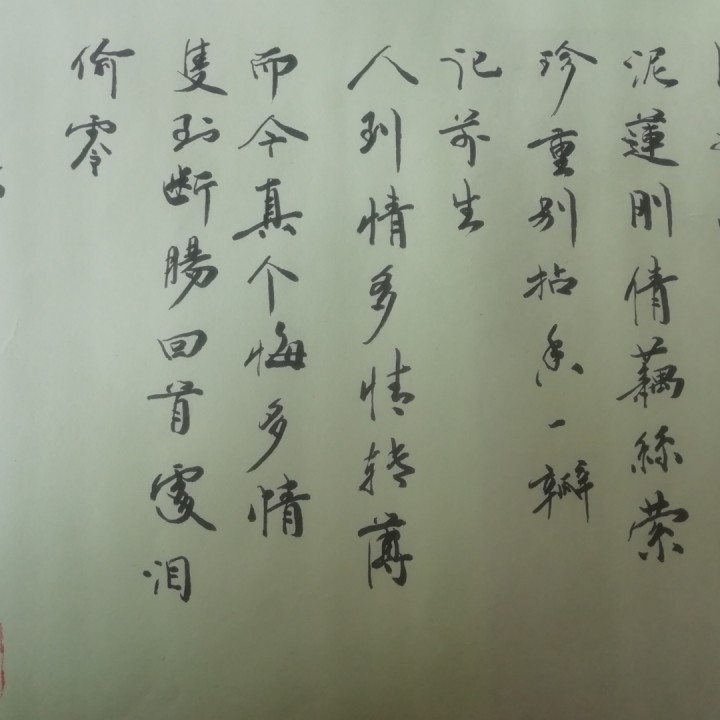 泥蓮刚倩藕絲萦
珍重别拈香一瓣
记前生
人到情多情转薄
而今真个悔多情
隻到断腸回首處泪
偷零